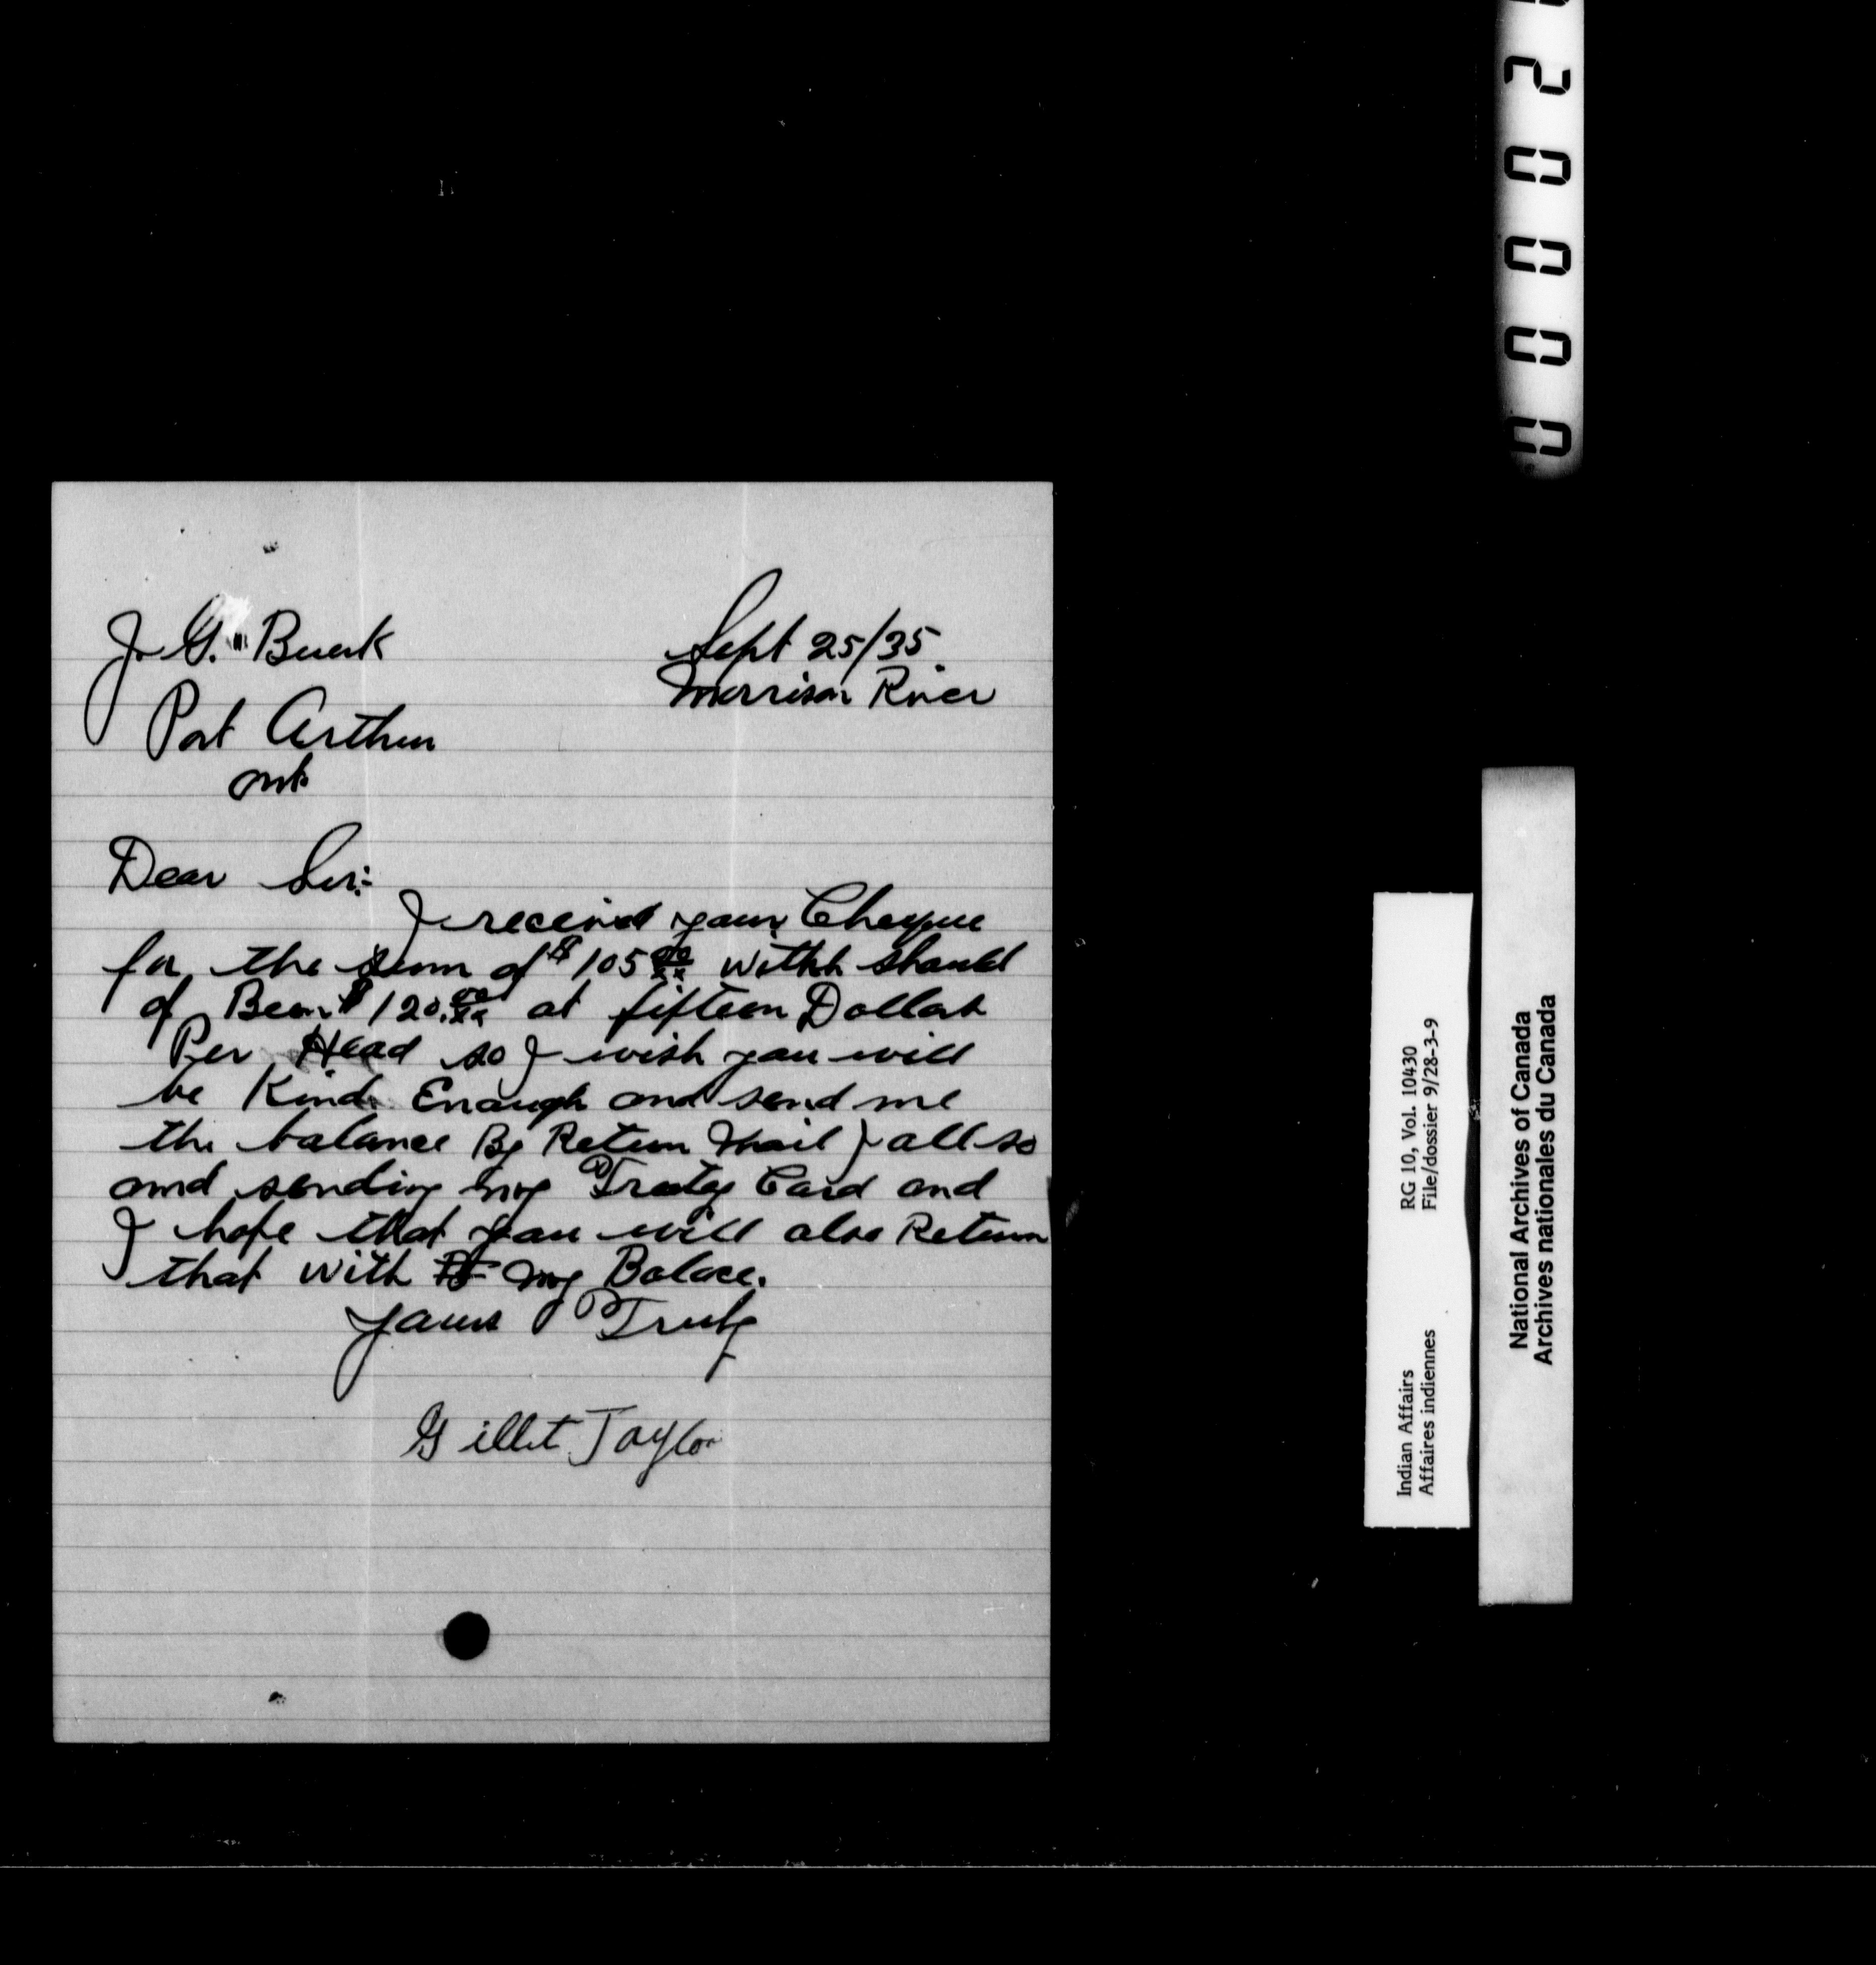 J. G. Burk
Sept 25/35.
Morrison River
Port Arthur
Ont.
Dear Sir:
I received your Cheque
for the sum of $105 00/xx witch should
of Been $120.00/xx at fifteen Dollars
Per Head so I wish you will
be Kind Enough and send me
the balance By Return Mail) all so
amd sending my Treaty Card and
I hope that you will also Return
that with my Balace.
Yours Truly
Gillet Taylor
0 0 0 0 2
Indian Affairs RG 10, Vol. 10430
Affaires indiennes File/dossier 9/28-3-9
National Archives of Canada
Archives nationales du Canada